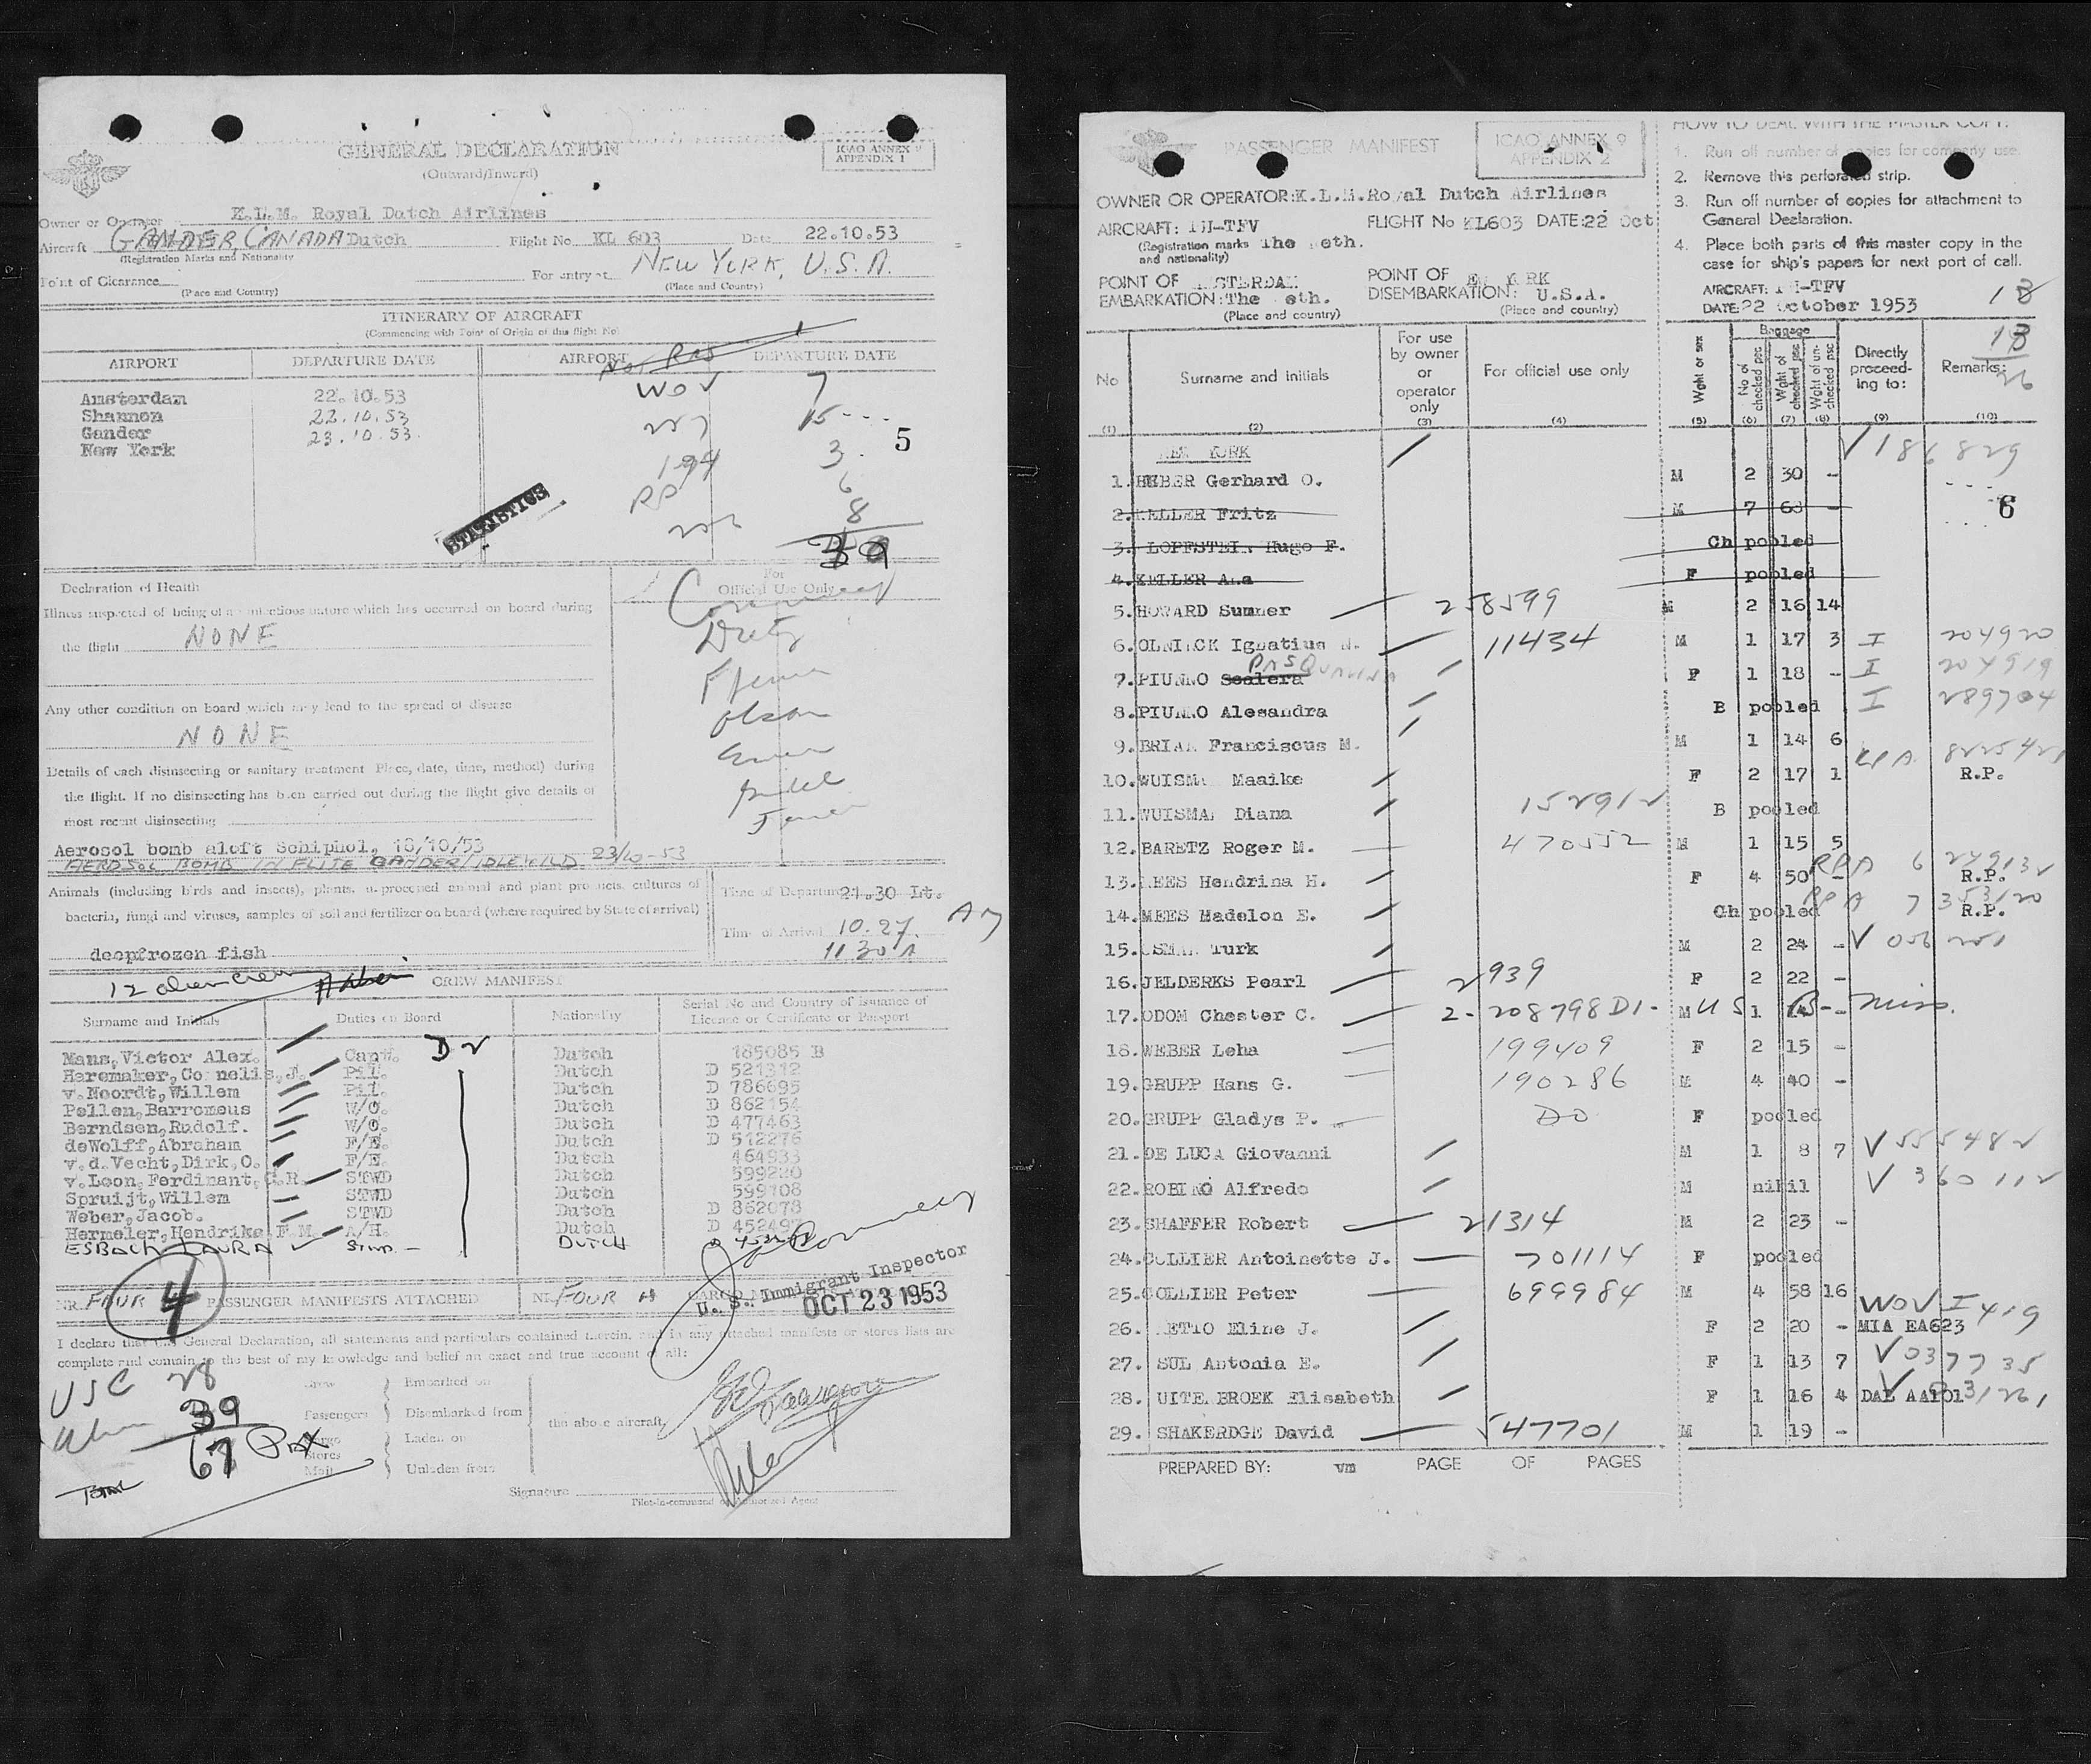 GENERAL DECLARATION
(Outward/Inward)
ICAO ANNEX 9
APPENDIX 1
Owner or Operator K.L.M. Royal Dutch Airlines
Aircraft GANDER, CANADA Dutch Flight No. KL 603 Date 22.10.53
(Registration Marks and Nationality
Point of Clearance For entry at NEW YORK, U.S.A.
(Place and Country) (Place and Country)
ITINERARY OF AIRCRAFT
(Commencing with Point of Origin of this flight No)
AIRPORT DEPARTURE DATE AIRPORT DEPARTURE DATE
WOV 7
Amsterdam 22.10.53
Shannon 22.10.53
Gander 23.10.53
New York
5
194 3
RP 6
8
STATISTICS
Declaration of Health
For
Official Use Only
Illness suspected of being of an infectious nature which has occurred on board during
the flight NONE
Any other condition on board which may lead to the spread of disease
NONE
Olson
Details of each disinsecting or sanitary treatment Place, date, time, method) during
the flight. If no disinsecting has been carried out during the flight give details of
most recent disinsecting
Aerosol bomb aloft Schiphol, 18/10/53
AEROSOL BOMB IN FLITE GANDER/IDLEWILD 23/10-53
Animals (including birds and insects), plants, unprocessed animal and plant products, cultures of
bacteria, fungi and viruses, samples of soil and fertilizer on board (where required by State of arrival)
Time of Departure 21.30 Lt.
Time of Arrival 10.27
11.30 A
deepfrozen fish
12 alien crew
CREW MANIFEST
Surname and Initials Duties on Board Nationality Serial No and Country of issuance of
License or Certificate or Passport
Mans, Victor Alex. Capt. Dutch 185085 B
Haremaker, Cornelis, J. Pil. Dutch D 521312
v. Noordt, Willem Pil. Dutch D 786695
Pellen, Barromeus W/O. Dutch D 862154
Berndsen, Rudolf. W/O. Dutch D 477463
deWolff, Abraham F/E. Dutch D 512276
v.d. Vecht, Dirk, O. F/E. Dutch 464933
v. Loon, Ferdinant, C.R. STWD Dutch 599220
Spruijt, Willem STWD Dutch 599108
Weber, Jacob. STWD Dutch D 862078
Hermeler, Hendrika F.M. A/H. Dutch D 452497
ESBACH LAURA STWD. DUTCH
NR. FOUR 4 PASSENGER MANIFESTS ATTACHED NR. FOUR
U. S. Immigrant Inspector
OCT 23 1953
I declare that this General Declaration, all statements and particulars contained therein, and in any attached manifests or stores lists are
complete and contain to the best of my knowledge and belief an exact and true account of all:
USC 28
Alien 39
67 Pax
TOTAL
Crew Embarked on
Passengers Disembarked from the above aircraft,
Cargo Laden on
Stores
Mail Unladen from
Signature
Pilot-in-command or Authorized Agent
PASSENGER MANIFEST
ICAO ANNEX 9
APPENDIX 2
OWNER OR OPERATOR: K.L.M. Royal Dutch Airlines
AIRCRAFT: PH-TFV FLIGHT No KL603 DATE: 22 Oct
(Registration marks and nationality) The Neth.
POINT OF EMBARKATION: AMSTERDAM The Neth.
(Place and country)
POINT OF DISEMBARKATION: NEW YORK U.S.A.
(Place and country)
HOW TO DEAL WITH THE MASTER COPY.
1. Run off number of copies for company use.
2. Remove this perforated strip.
3. Run off number of copies for attachment to
General Declaration.
4. Place both parts of this master copy in the
case for ship's papers for next port of call.
AIRCRAFT: PH-TFV
DATE: 22 October 1953
No Surname and initials For use by owner or operator only For official use only Wght or sex Baggage No of checked psc Wght of checked psc Wght of unchecked psc Directly proceeding to: Remarks:
(1) (2) (3) (4) (5) (6) (7) (8) (9) (10)
NEW YORK V 186829
1. HUBER Gerhard O. M 2 30 -
6
2. KELLER Fritz M 7 68 -
3. LOPFSTEIN Hugo F. Ch pooled
4. KELLER Ana F pooled
5. HOWARD Sumner 258599 M 2 16 14
6. OLNICK Ignatius N. 11434 M 1 17 3 I 204920
7. PIUNNO Scolera PASQUALINA F 1 18 - I 204919
8. PIUNNO Alesandra B pooled I 289704
9. BRIAN Franciscus M. M 1 14 6
10. WUISMAN Maaike F 2 17 1 R.P.
11. WUISMAN Diana 152912 B pooled
12. BARETZ Roger M. 470552 M 1 15 5
13. MEES Hendrina H. F 4 50 - R.P.
14. MEES Madelon E. Ch pooled R.P.
15. OSMAN Turk M 2 24 -
16. JELDERKS Pearl 2939 F 2 22 -
17. ODOM Chester C. 2-208798 D1- M US 1 14 B- Miss.
18. WEBER Leha 199409 F 2 15 -
19. GRUPP Hans G. 190286 M 4 40 -
20. GRUPP Gladys P. DO F pooled
21. DE LUCA Giovanni M 1 8 7 V 555482
22. ROBINO Alfredo M nihil V 360112
23. SHAFFER Robert 21314 M 2 23 -
24. COLLIER Antoinette J. 701114 F pooled
25. COLLIER Peter 699984 M 4 58 16
WOV I 419
26. ETIO Eline J. F 2 20 - MIA EA623
27. SUL Antonia E. F 1 13 7 V 037735
28. UITENBROEK Elisabeth F 1 16 4 DAL AA101
29. SHAKERDGE David 547701 M 1 19 -
PREPARED BY: vm PAGE OF PAGES